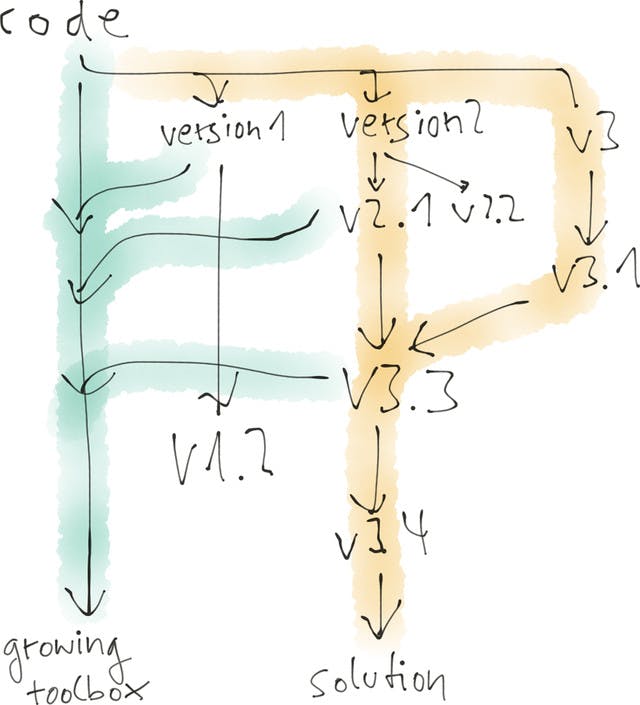 code
version1
version2
v3
v2.1
v2.2
v3.1
v3.3
v1.2
v3.4
growing
toolbox
solution